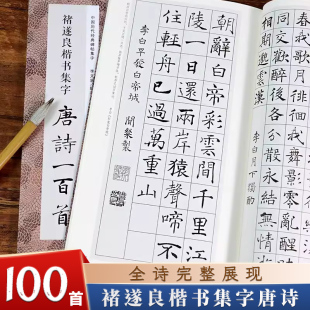 中国历代经典碑帖集字
褚遂良楷书集字
唐詩一百首
徊我舞影零亂醒
同歡醉後各分散永結無
李白月下獨酌
朝辭白帝彩雲間千里江
陵一日還兩岸猿聲啼不
住輕舟已過萬重山
李白早發白帝城
全诗完整展现
100首
褚遂良楷书集字唐诗